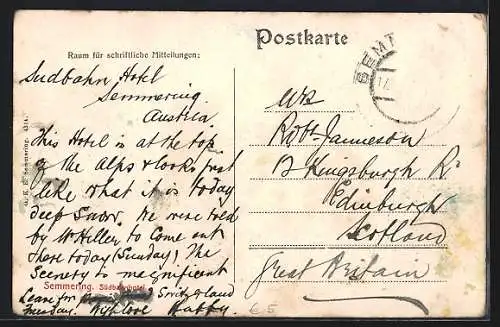 Raum für schriftliche Mitteilungen:
Südbahn Hotel
Semmering.
Austria
This Hotel is at the top
of the Alps & looks just
like what it is today
deep Snow. We were told
by Mr Hiller to come out
here today (Sunday). The
Scenery is magnificent
Semmering. Südbahnhotel
Leave for Switzerland
Tuesday. With love
Postkarte
SEMM
Robt Jameson
Kingsburgh Rd
Edinburgh
Scotland
Great Britain